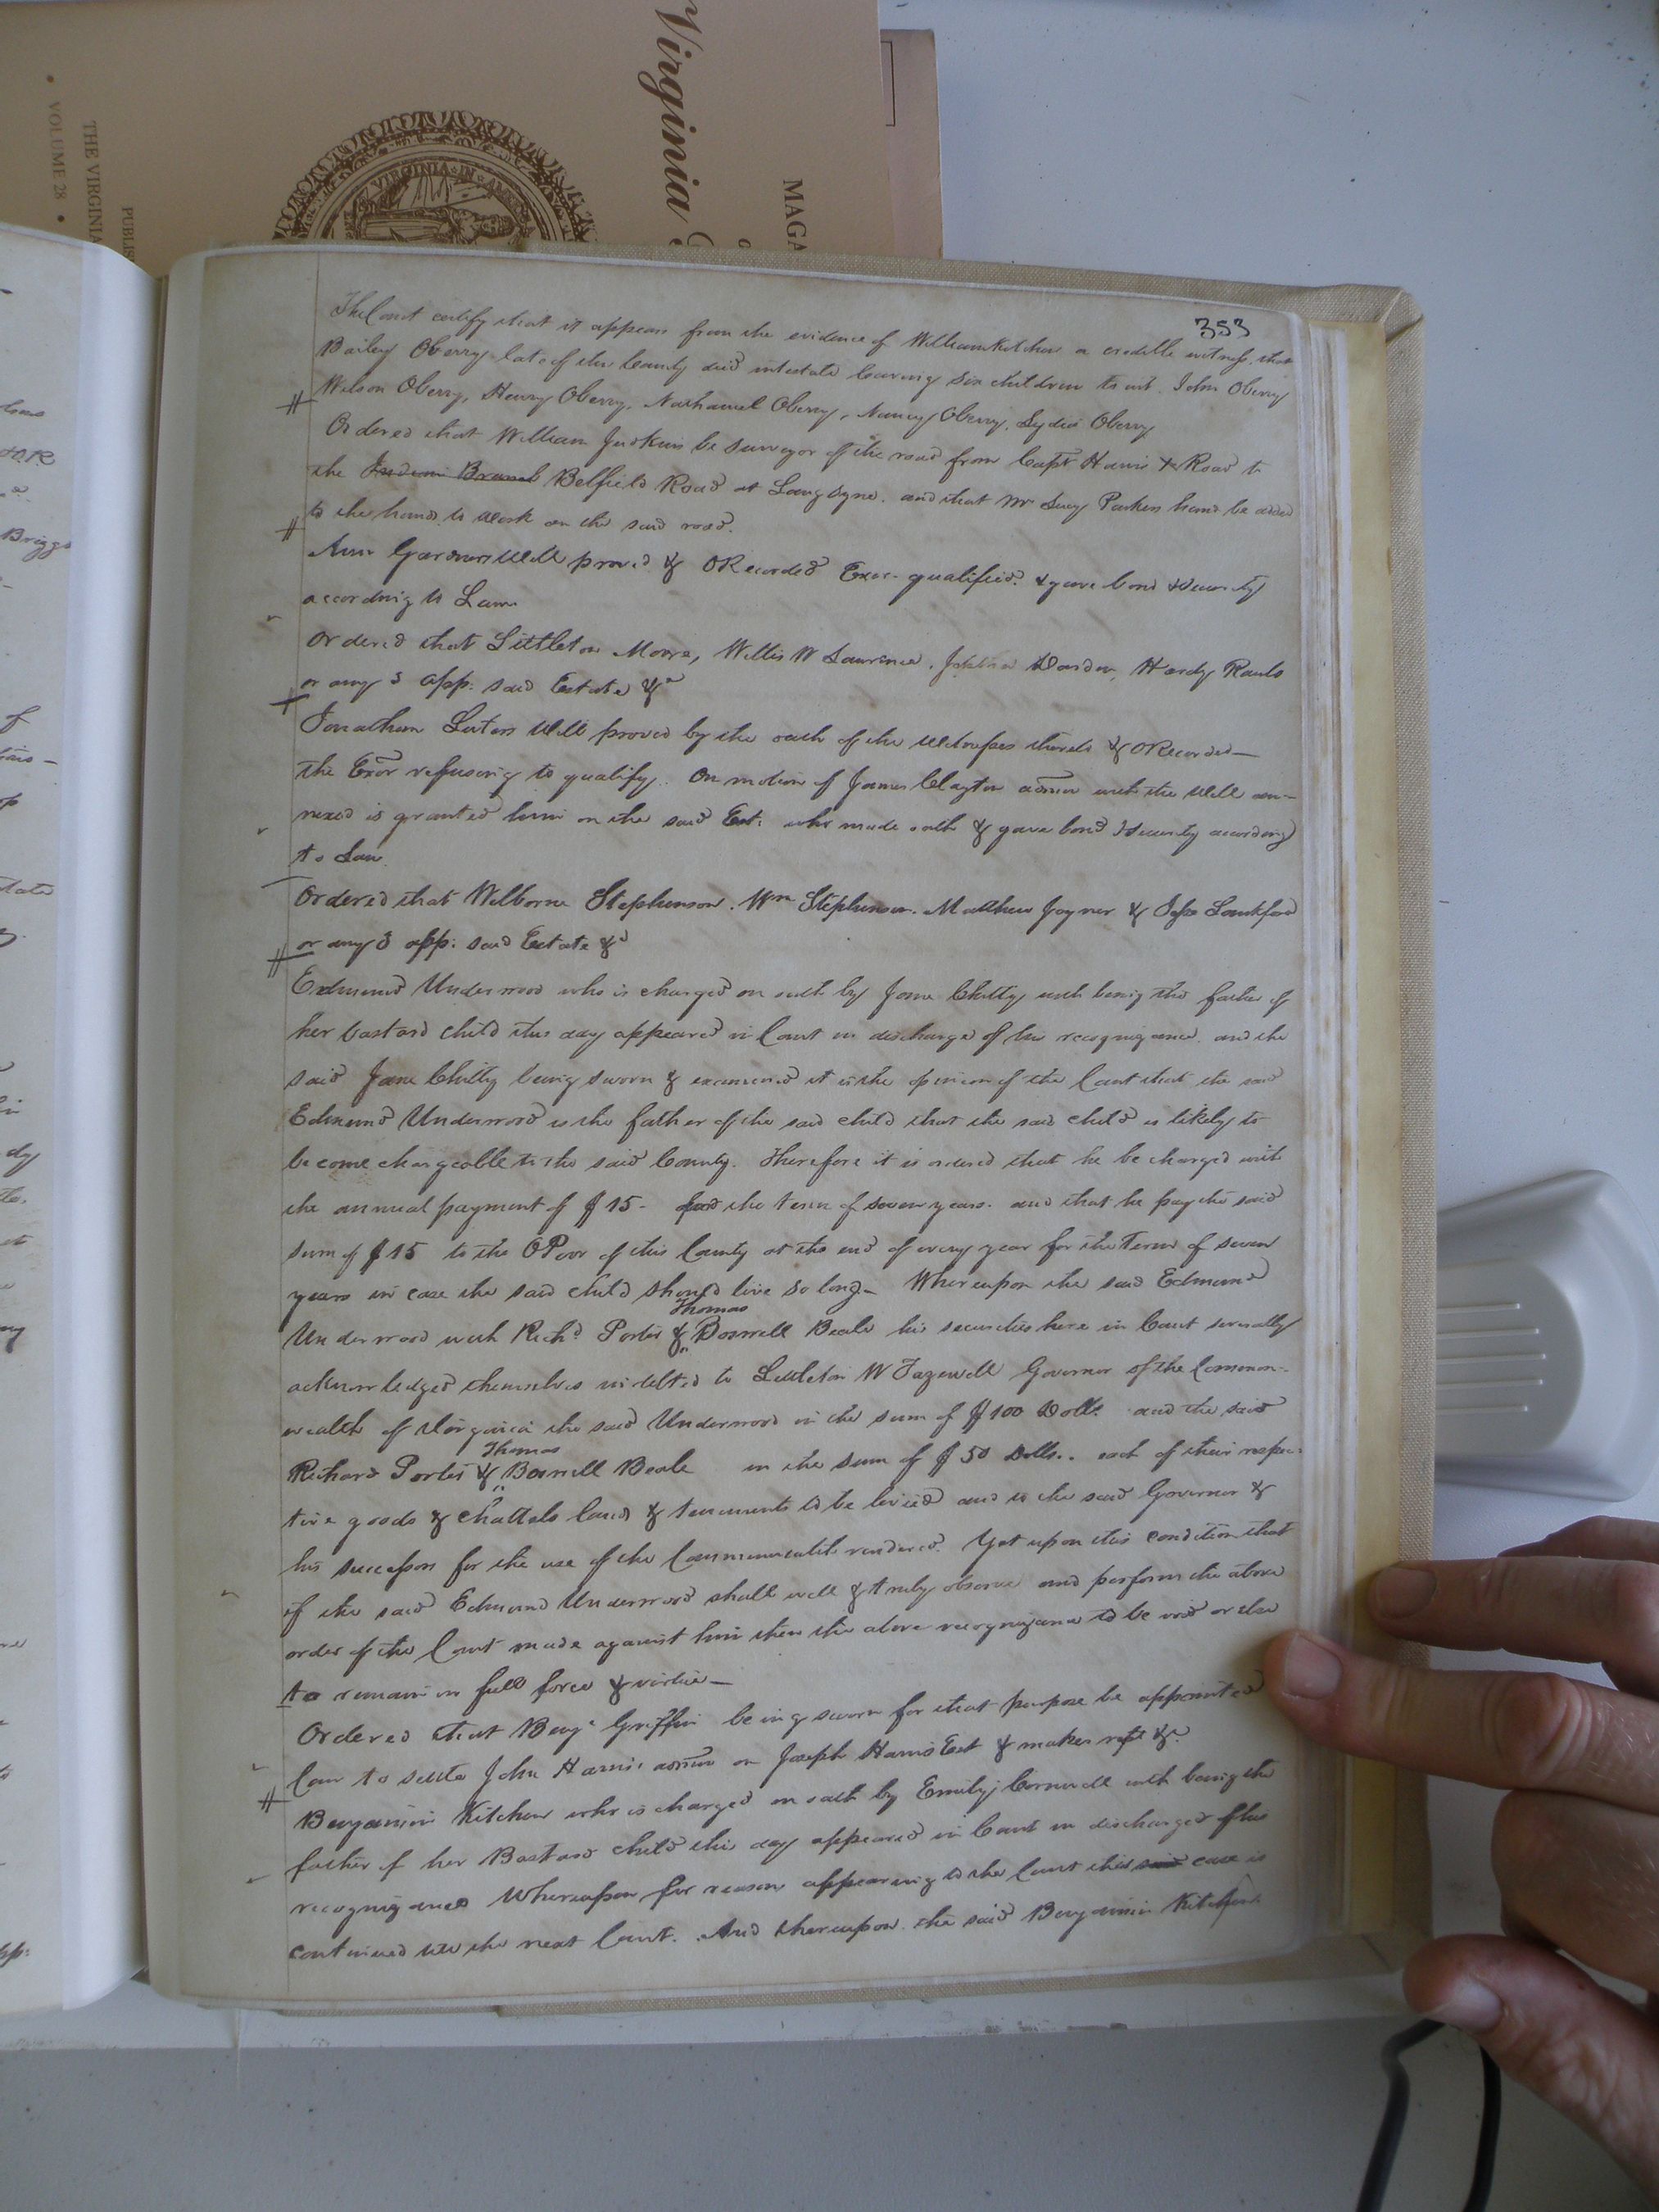 Virginia
MAGA
THE VIRGINIA
VOLUME 28
PUBLIS
VIRGINIA IN
353
The Court certify that it appears from the evidence of William Kitchen a credible witness, that
Bailey Oberry late of this County died intestate leaving six children to wit. John Oberry
Wilson Oberry, Henry Oberry, Nathaniel Oberry, Nancy Oberry, Lydia Oberry
Ordered that William Judkins be surveyor of the road from Capt Harris + Road to
the Belfield Road at Lang Syne. and that Mrs Lucy Parkers hand be added
to the hands to work on the said road.
Ann Gardners Will proved & ORecorded Exor. qualified & gave bond & security
according to Law
Ordered that Littleton Moore, Willis W Lawrence, Joshua Darden, Hardy Rawls
or any 3 app: said Estate &a
Jonathan Luters Will proved by the oath of the Witnesses thereto & ORecorded—
the Exor refusing to qualify. On motion of James Clayton admon with the Will an-
nexed is granted him on the said Est: who made oath & gave bond & security according
to Law
Ordered that Welborne Stephenson. Wm Stephenson. Matthew Joyner & Jesse Lankford
or any 3 app: said Estate &a
Edmund Underwood who is charged on oath by Jane Chitty with being the father of
her bastard child this day appeared in Court in discharge of his recognizance. and the
said Jane Chitty being sworn & examined it is the opinion of the Court that the said
Edmund Underwood is the father of the said child that the said child is likely to
become chargeable to the said County. Therefore it is ordered that he be charged with
the annual payment of $15- for the term of seven years. and that he pay the said
sum of $15 to the OPoor of this County at the end of every year for the Term of seven
years in case the said child should live so long— Whereupon the said Edmund
Thomas
Underwood with Richd Porter & Boswell Beale his securities here in Court severally
acknowledged themselves indebted to Littleton W Tazewell Governor of the Common-
wealth of Virginia the said Underwood in the sum of $100 Dolls. and the said
Thomas
Richard Porter & Boswell Beale in the sum of $50 Dolls.. each of their respec-
tive goods & chattels lands & tenements to be levied and to the said Governor &
his successors for the use of the Commonwealth rendered. Yet upon this condition that
if the said Edmund Underwood shall well & truly observe and perform the above
order of the Court made against him then the above recognizance to be void or else
to remain in full force & virtue—
Ordered that Benja Griffin being sworn for that purpose be appointed
Com to settle John Harris admon on Joseph Harris Est & makes rept &c
Benjamin Kitchen who is charged on oath by Emily Cornwell with being the
father of her Bastard child this day appeared in Court in discharge of his
recognizance Whereupon for reasons appearing to the Court this said case is
continued till the next Court. And thereupon the said Benjamin Kitchen